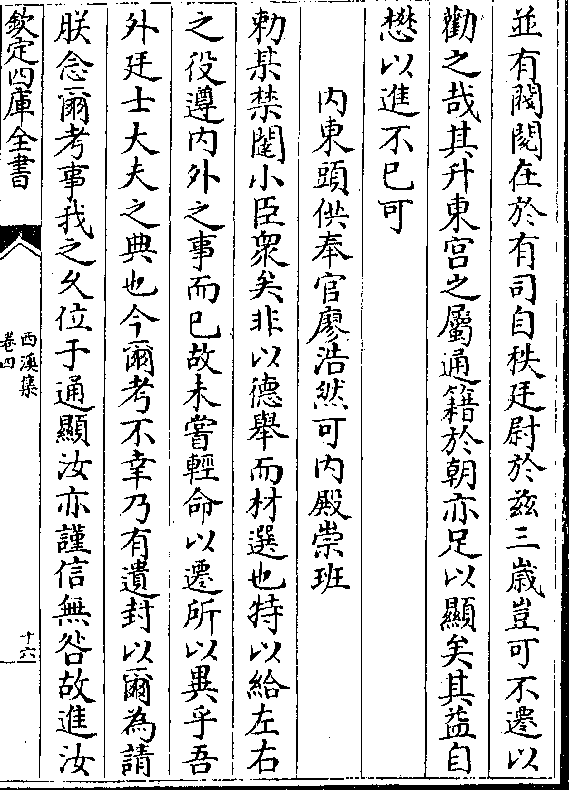 並有閥閱在於有司自秩廷尉於兹三嵗豈可不遷以
勸之哉其升東宫之屬通籍於朝亦足以顯矣其益自
懋以進不已可
内東頭供奉官廖浩然可内殿崇班
勅某禁闥小臣衆矣非以德舉而材選也特以給左右
之役遵内外之事而已故未嘗輕命以遷所以異乎吾
外廷士大夫之典也今爾考不幸乃有遺封以爾為請
朕念爾考事我之久位于通顯汝亦謹信無咎故進汝
欽定四庫全書
西溪集
卷四
十六